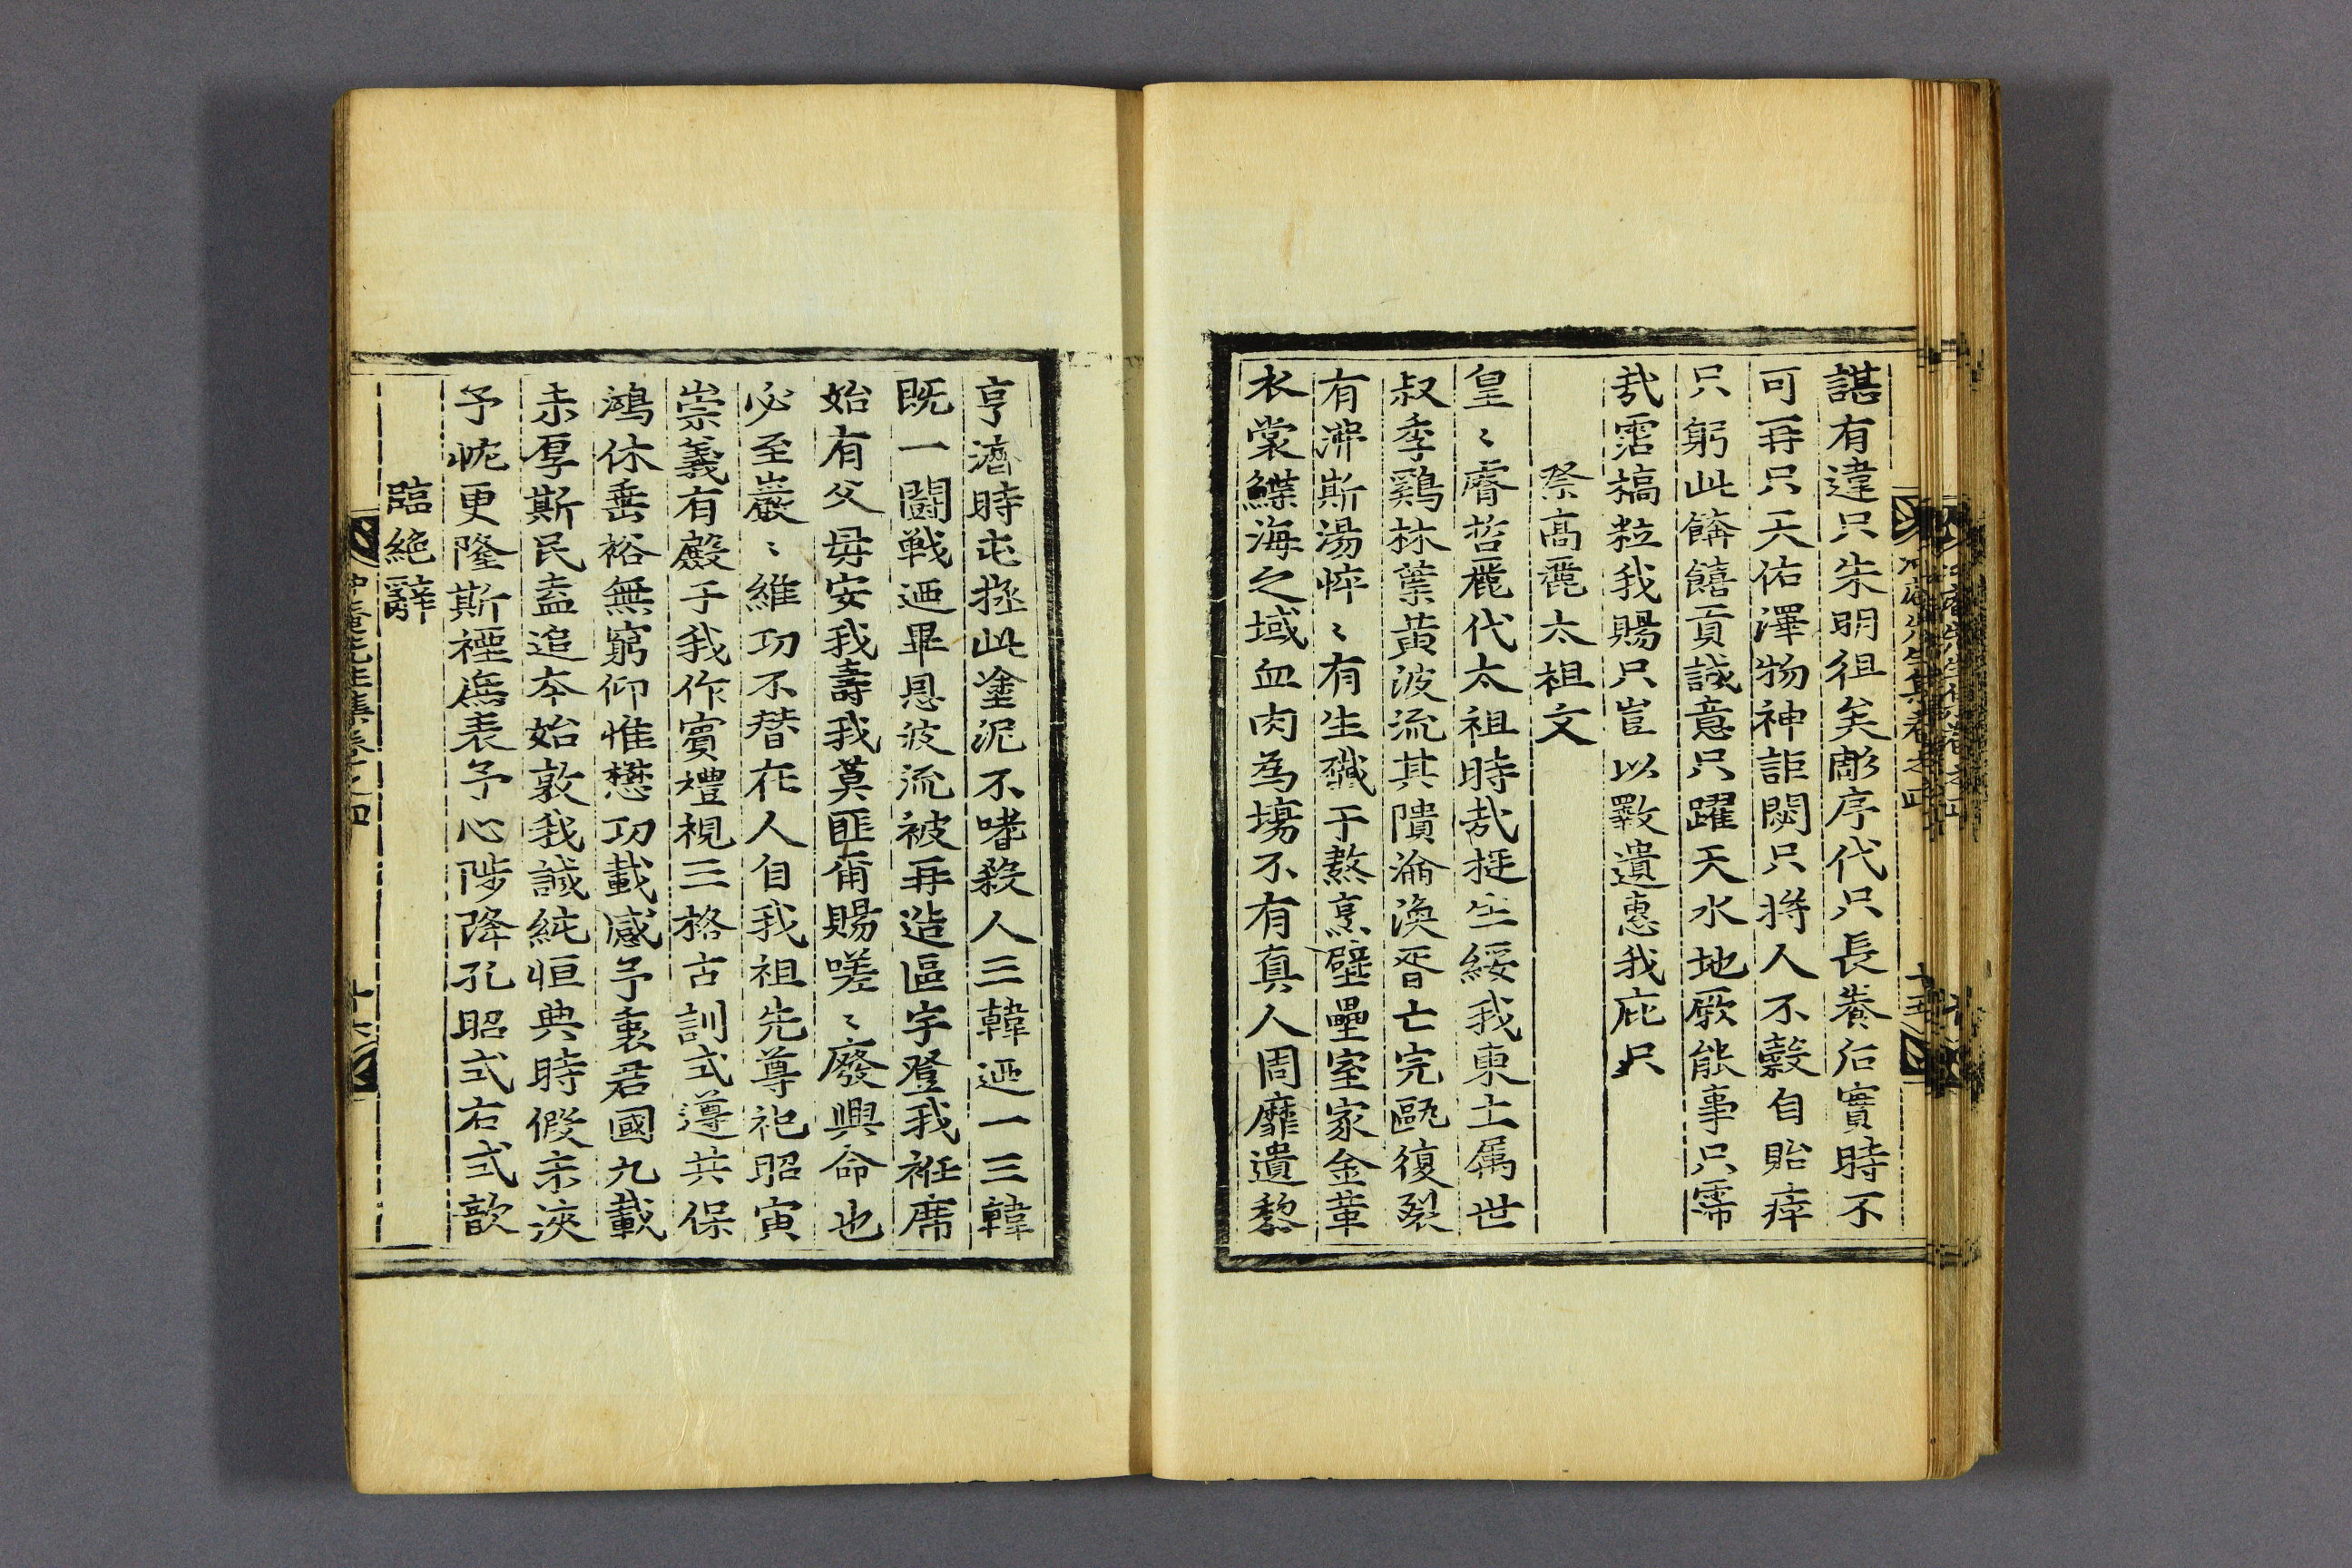 諶有違只朱明徂矣彫序代只長養后實時不
可再只天佑澤物神詎閟只將人不穀自貽痒
只躬此餴饎貢誠意只躍天水地厥能事只霈
哉霑槁粒我賜只豈以斁遺惠我庇只
祭高麗太祖文
皇〻膚哲麗代太祖時哉挺生綏我東土属世
叔季鷄林葉黃波流其隤淪渙胥亡完甌復裂
有沸斯湯悴〻有生殲于熬烹壁壘室家金革
衣裳鰈海之域血肉為塲不有真人周靡遺黎
亨濟時屯拯此塗泥不嗜殺人三韓迺一三韓
既一闘戦迺畢恩波流被再造區宇登我袵席
始有父母安我壽我莫匪甫賜嗟〻廢興命也
必至巖〻維功不替在人自我祖先尊祀昭寅
崇義有殿于我作賓禮視三格古訓式遵共保
鴻休垂裕無窮仰惟懋功載感予衷君國九載
未厚斯民盍追本始敦我誠純恒典時假未浹
予恢更隆斯禋庶表予心陟降孔昭式右式歆
臨絶辭
冲庵先生集卷之四